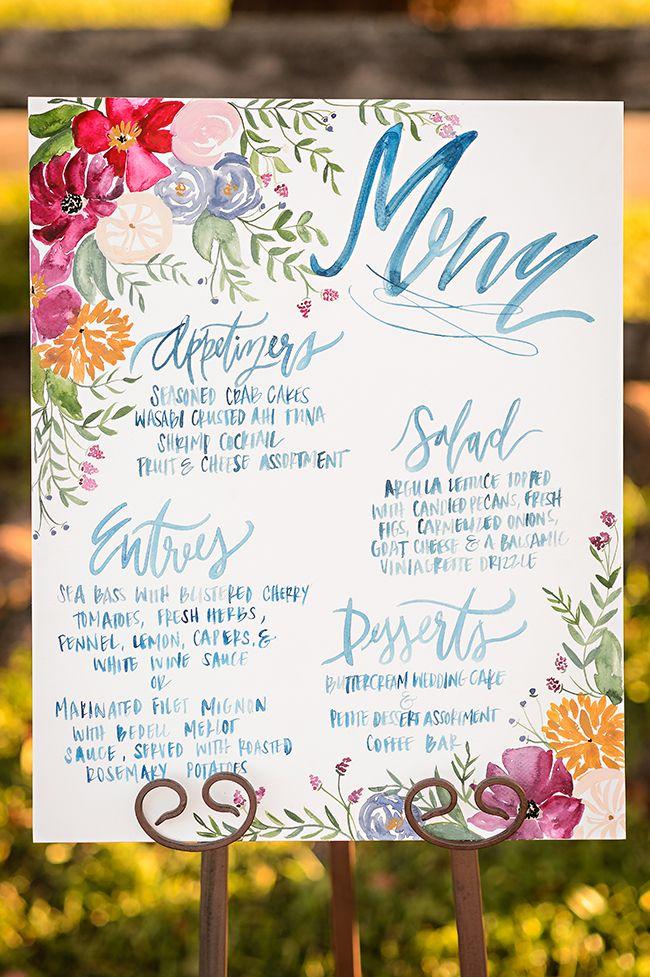 Menu
Appetizers
SEASONED CRAB CAKES
WASABI CRUSTED AHI TUNA
SHRIMP COCKTAIL
FRUIT & CHEESE ASSORTMENT
Salad
ARGULA LETTUCE TOPPED
WITH CANDIED PECANS, FRESH
FIGS, CARMELIZED ONIONS,
GOAT CHEESE & A BALSAMIC
VINIAGRETTE DRIZZLE
Entrees
SEA BASS WITH BLISTERED CHERRY
TOMATOES, FRESH HERBS,
FENNEL, LEMON, CAPERS, &
WHITE WINE SAUCE
OR
MARINATED FILET MIGNON
WITH BEDELL MERLOT
SAUCE, SERVED WITH ROASTED
ROSEMARY POTATOES
Desserts
BUTTERCREAM WEDDING CAKE
&
PETITE DESSERT ASSORTMENT
COFFEE BAR